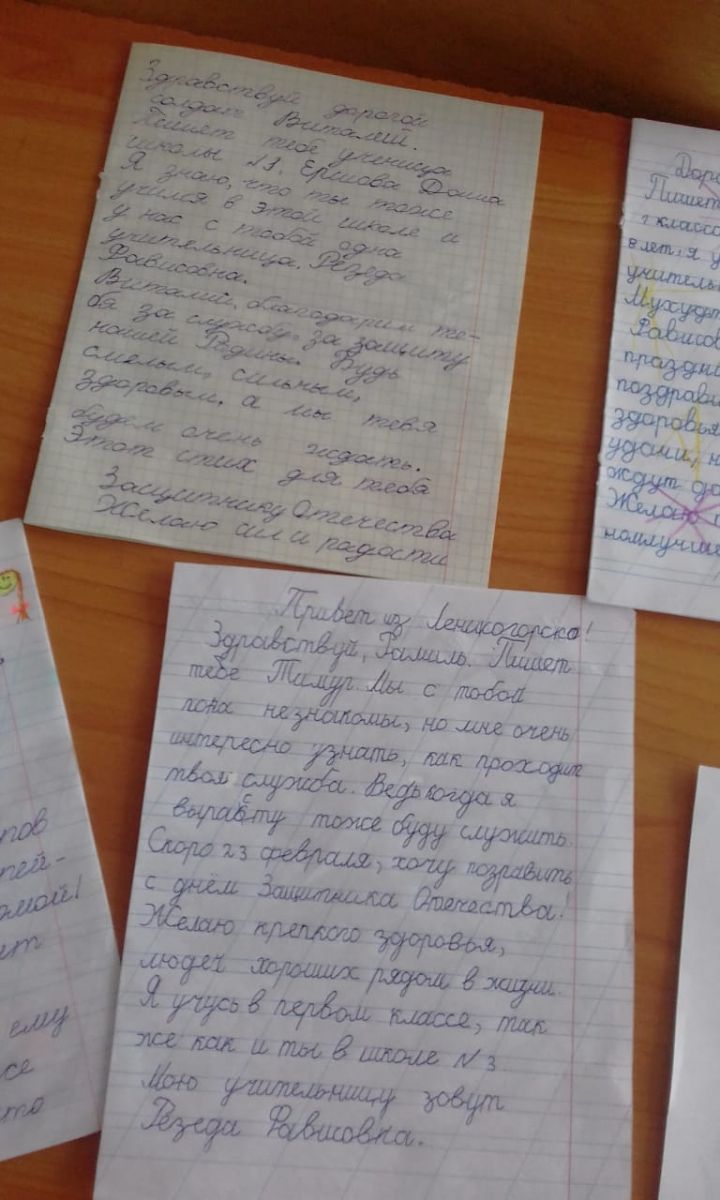 Здравствуй дорогой
солдат Виталий.
Пишет тебе ученица
школы №3. Ершова Даша
Я знаю, что ты тоже
учился в этой школе и
у нас с тобой одна
учительница. Резеда
Фависовна.
Виталий, благодарим те-
бя за службу, за защиту
нашей Родины. Будь
смелым, сильным,
здоровым, а мы тебя
будем очень ждать.
Этот стих для тебя
Защитнику Отечества
Желаю сил и радости
Пишет
1 класса
8 лет, я у
учитель
Фависов
праздни
поздрави
здоровья
удачи, н
ждут до
Желаю
Привет из Лениногорска!
Здравствуй, Рамиль. Пишет
тебе Тимур. Мы с тобой
пока незнакомы, но мне очень
интересно узнать, как проходит
твоя служба. Ведь когда я
вырабту тоже буду служить.
Скоро 23 февраля, хочу позравить
с днём Защитника Отечества!
Желаю крепкого здоровья,
людей хороших рядом в жизни.
Я учусь в первом классе, так
же как и ты в школе №3.
Мою учительницу зовут
Резеда Фависовна.
тов
тей-
омой!
ет
ему
се
то